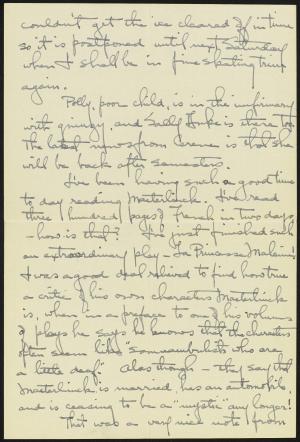 couldn't get the ice cleared off in time
so it is postponed until next Saturday
when I shall be in fine skating trim
again.
Polly, poor child, is in the infirmary
with grippe, and Sally is there too.
The latest news from is that she
will be back after semesters.
I've been having such a good time
to day reading Maeterlinck. I've read
three hundred pages of French in two days
- how is that? I've just finished such
an extraordinary play - La Princesse Maleine
I was a good deal relieved to find how true
a critic of his own characters Maeterlinck
is, when in a preface to one of his volumes
of plays he says he knows that the characters
often seem like "somnambulists who are
a little deaf." Alas though - they say that
Maeterlinck is married, has an automobile
and is ceasing to be a "mystic" any longer!
That was a very nice note from